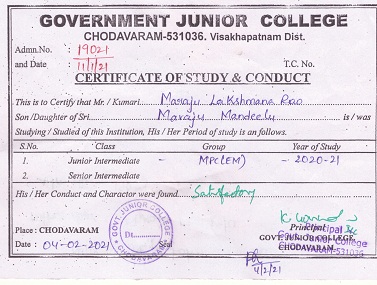 GOVERNMENT JUNIOR COLLEGE
CHODAVARAM-531036. Visakhapatnam Dist.
Admn.No. : 19021
and Date : 11/1/21 T.C. No.
CERTIFICATE OF STUDY & CONDUCT
This is to Certify that Mr. / Kumari. Maraju Lakshmana Rao
Son /Daughter of Sri. Maraju Mandeelu is / was
Studying / Studied of this Institution, His / Her Period of study is an follows.
S.No. Class Group Year of Study
1. Junior Intermediate - MPC(EM) - 2020-21
2. Senior Intermediate
His / Her Conduct and Charactor were found. Satisfactory
Place : CHODAVARAM
Date : 04-02-2021 Seal
GOVT JUNIOR COLLEGE
Dt.
CHODAVARAM
Principal
GOVT. JUNIOR COLLEGE
CHODAVARAM
Principal
Govt. Junior College
CHODAVARAM-531036
4/2/21